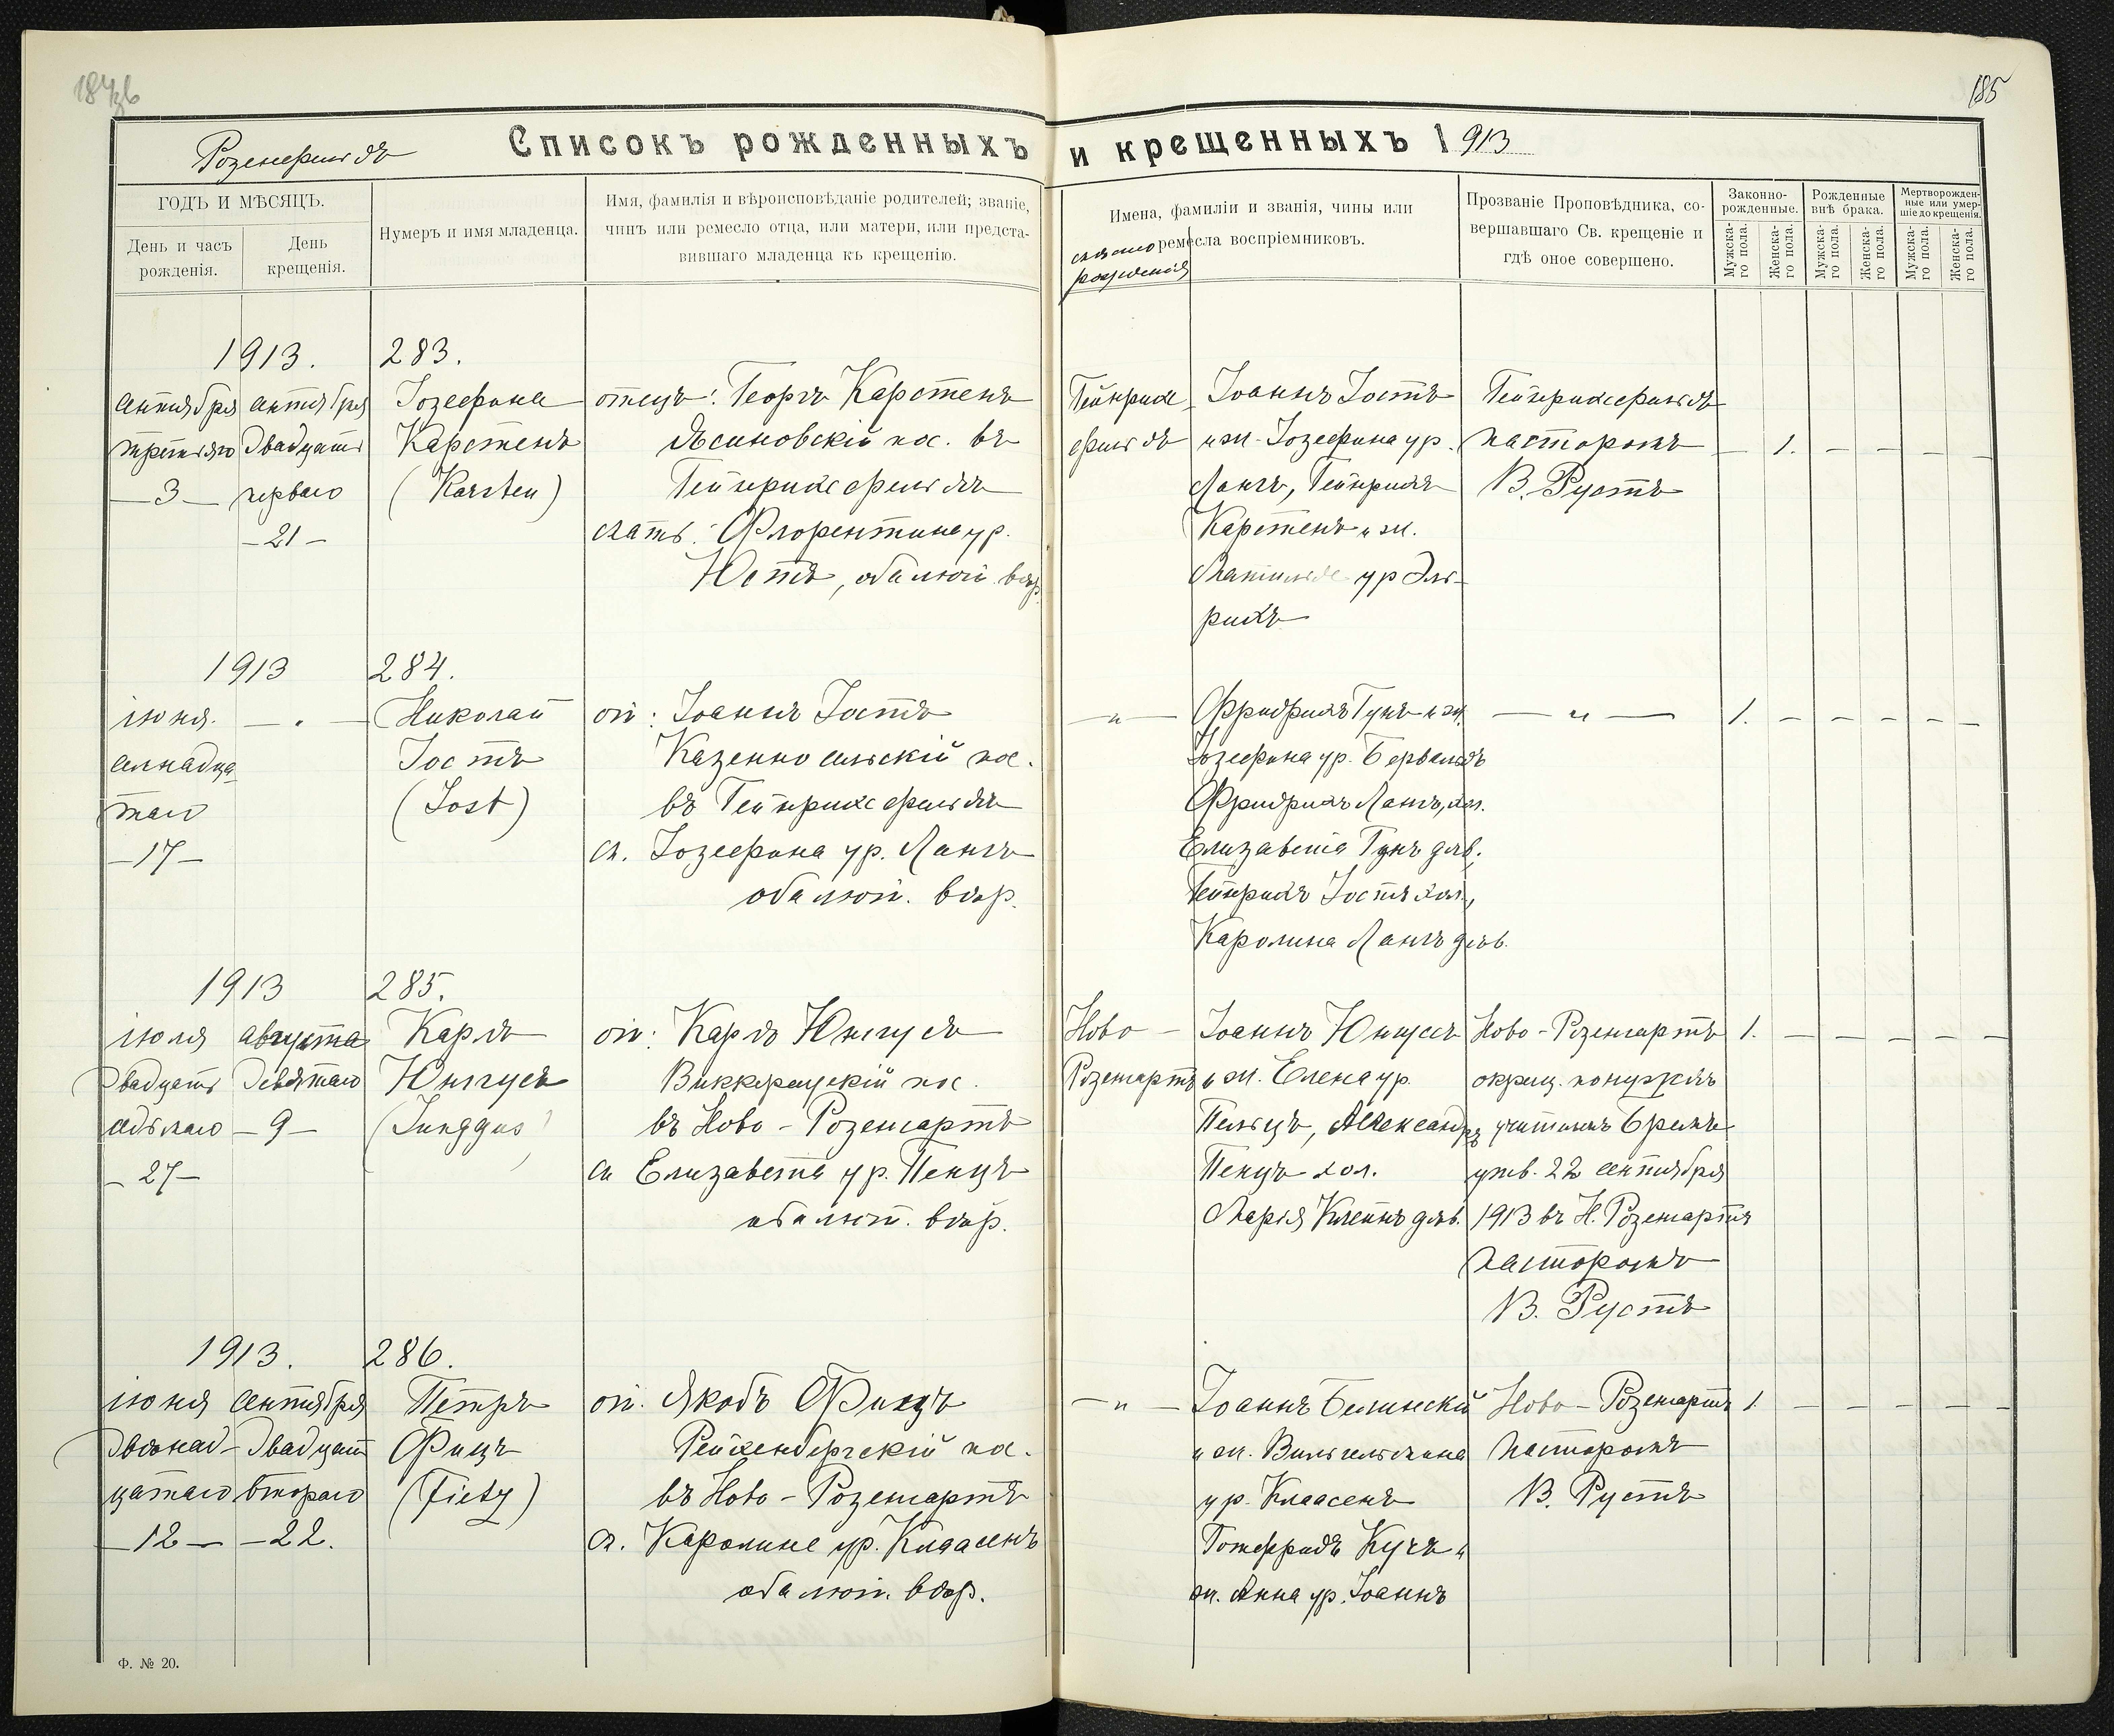 185
Розенфельдъ
Списокъ рожденныхъ и крещенныхъ 1913
ГОДЪ И МѢСЯЦЪ.
День и часъ рожденія.
День крещенія.
Нумеръ и имя младенца.
Имя, фамилія и вѣроисповѣданіе родителей; званіе,
чинъ или ремесло отца, или матери, или предста-
вившаго младенца къ крещенію.
Имена, фамиліи и званія, чины или
ремесла воспріемниковъ.
мѣсто
рожденія
Прозваніе Проповѣдника, со-
вершавшаго Св. крещеніе и
гдѣ оное совершено.
Законно-
рожденные.
Рожденные
внѣ брака.
Мертворожден-
ные или умер-
шіе до крещенія.
Мужска-
го пола.
Женска-
го пола.
Мужска-
го пола.
Женска-
го пола.
Мужска-
го пола.
Женска-
го пола.
1913.
сентября
третьяго
—3—
сентября
двадцать
перваго
—21—
283.
Іозефина
Карстенъ
(Karsten)
отецъ: Георгъ Карстенъ
Ясиновскій пос. въ
Гейнрихсфельдѣ
мать: Флорентина ур.
Юстъ, оба лют. вѣр.
Гейнрихс-
фельдъ
Іоаннъ Іостъ
и ж. Іозефина ур.
Лангъ, Гейнрихъ
Карстенъ и ж.
Матильда ур Эль-
рихъ
Гейнрихсфельдъ
пасторомъ
В. Рустъ
— 1. — — — —
1913
іюня
семнадца
таго
—17—
— . —
284.
Николай
Іостъ
(Jost)
от: Іоаннъ Іостъ
Казенносельскій пос.
въ Гейнрихсфельдѣ
м. Іозефина ур. Лангъ
оба лют. вѣр.
— „ —
Фридрихъ Гунъ и ж.
Іозефина ур. Бервальдъ
Фридрихъ Лангъ, хол.
Елизавета Гунъ дѣв.
Гейнрихъ Іостъ хол.,
Каролина Лангъ дѣв.
— „ —
1. — — — — —
1913
іюля
двадцать
седьмаго
—27—
августа
девятаго
—9—
285.
Карлъ
Юнггусъ
(Junggus)
от: Карлъ Юнггусъ
Виккераускій пос.
въ Ново-Розенгартѣ
м Елизавета ур. Пенцъ
оба лют. вѣр.
Ново-
Розенгартъ
Іоаннъ Юнггусъ
и ж. Елена ур.
Пельцъ, Александръ
Пенцъ хол.
Марія Клейнъ дѣв.
Ново-Розенгартъ
окрещ. по нуждѣ
учителемъ Бремъ
утв. 22 сентября
1913 въ Н. Розенгартѣ
пасторомъ
В. Рустъ
1. — — — — —
1913.
іюня
двѣнад-
цатаго
—12—
сентября
двадцать
втораго
—22.
286.
Петръ
Фицъ
(Fietz)
от. Якобъ Фицъ
Рейхенбергскій пос.
въ Ново-Розенгартѣ
м. Каролина ур. Клаасенъ
оба лют. вѣр.
— „ —
Іоаннъ Белинскій
и ж. Вильгельмина
ур. Клаасенъ
Готфридъ Кучъ и
ж. Анна ур. Іоаннъ
Ново-Розенгартъ
пасторомъ
В. Рустъ
1. — — — — —
Ф. № 20.